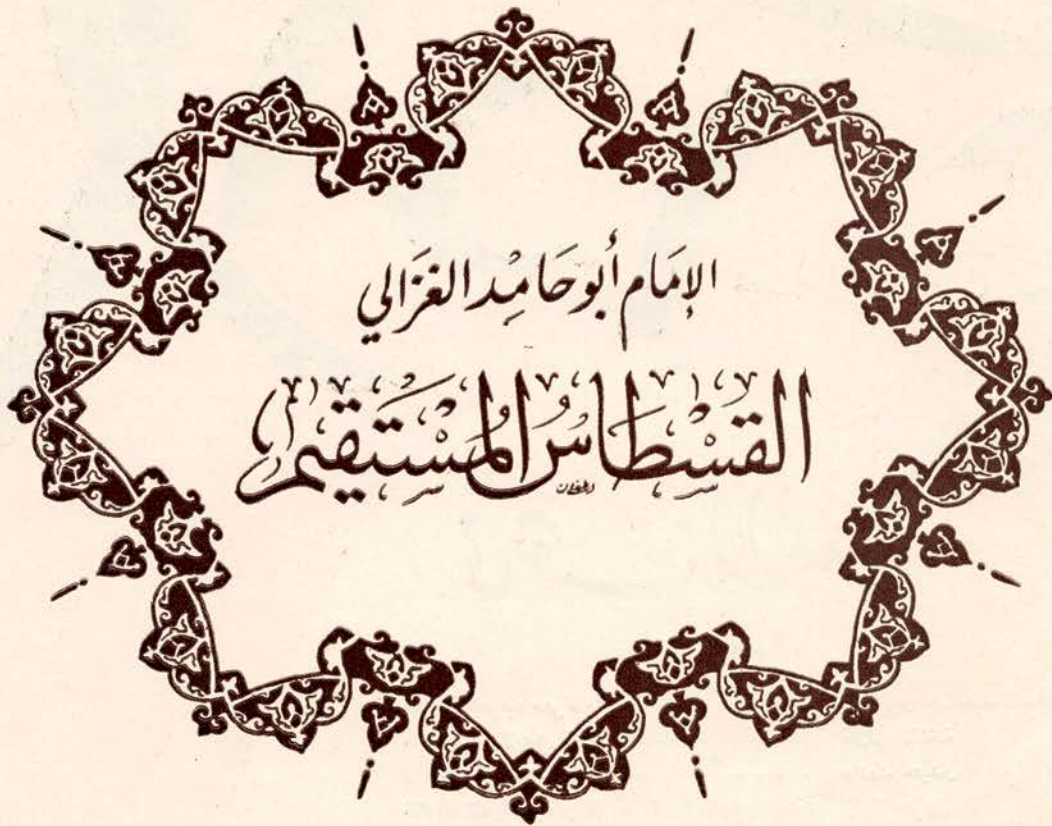 الإمَام أبو حَامِد الغَزَالي
القِسْطَاسُ المُسْتَقِيم